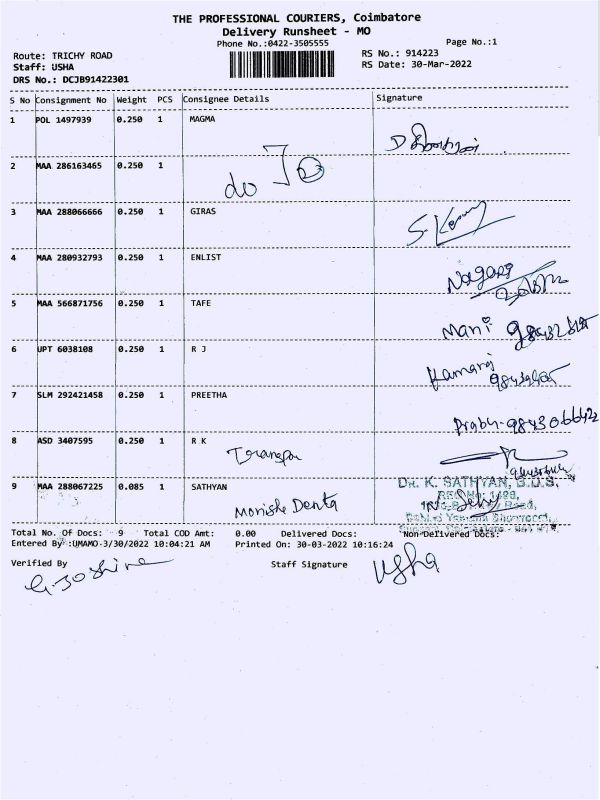 THE PROFESSIONAL COURIERS, Coimbatore
Delivery Runsheet - MO
Phone No.:0422-3505555
Page No.:1
Route: TRICHY ROAD
RS No.: 914223
Staff: USHA
RS Date: 30-Mar-2022
DRS No.: DCJB91422301
S No Consignment No Weight PCS Consignee Details Signature
1 POL 1497939 0.250 1 MAGMA
2 MAA 286163465 0.250 1
do
3 MAA 288066666 0.250 1 GIRAS
4 MAA 280932793 0.250 1 ENLIST
Nagaraj
5 MAA 566871756 0.250 1 TAFE
Mani
6 UPT 6038108 0.250 1 R J
Kamaraj
7 SLM 292421458 0.250 1 PREETHA
Prabu- 9843066642
8 ASD 3407595 0.250 1 R K
9 MAA 288067225 0.085 1 SATHYAN
Monisha Denta
DR. K. SATHYAN, B.D.S.
Total No. Of Docs: 9 Total COD Amt: 0.00 Delivered Docs: Non-Delivered Docs:
Entered By :UMAMO-3/30/2022 10:04:21 AM Printed On: 30-03-2022 10:16:24
Verified By Staff Signature
Usha